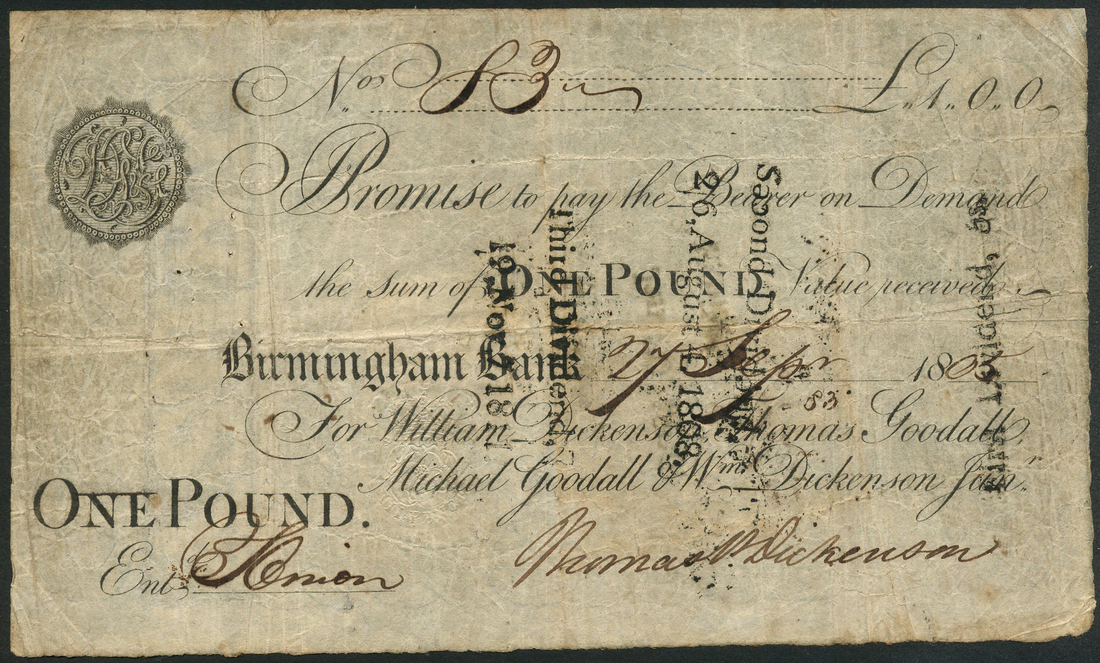 No. 83 £1,,0,,0
I Promise to pay the Bearer on Demand
the sum of ONE POUND Value received
Birmingham Bank 27 Sepr 1805
83
For William Dickenson, Thomas Goodall,
Michael Goodall & Wm. Dickenson Junr.
ONE POUND.
Entd
Thomas Dickenson
First Dividend,
Second Dividend,
26, August 1808.
Third Dividend,
19, Nov. 18